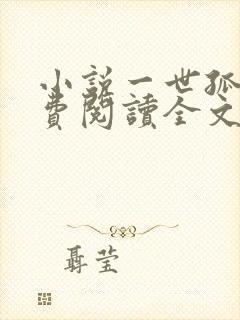 小說一世孤
費閱讀全文
聶莹